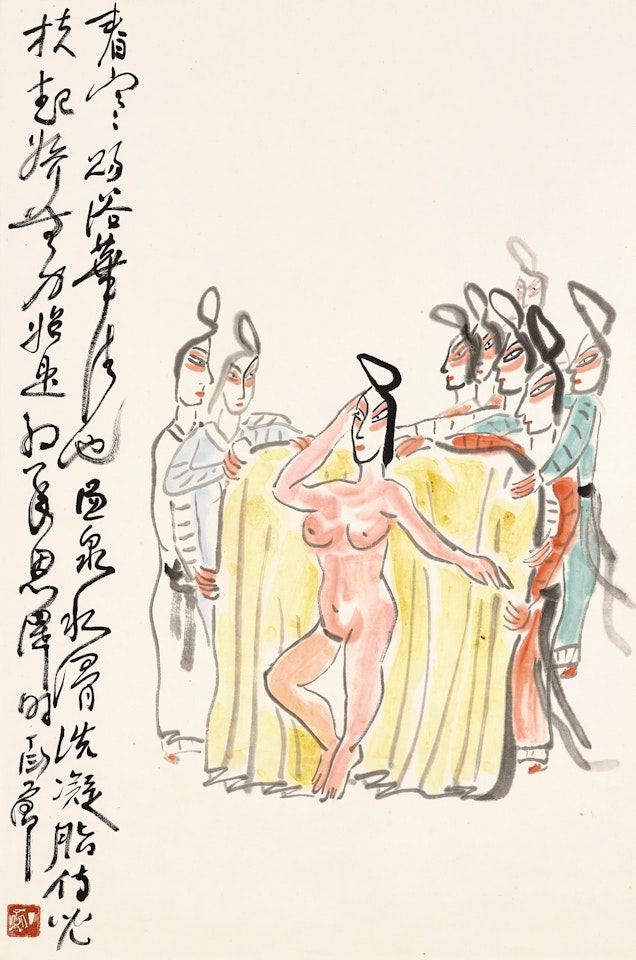 春寒賜浴華清池温泉水滑洗凝脂侍兒
扶起嬌無力始是新承恩澤時